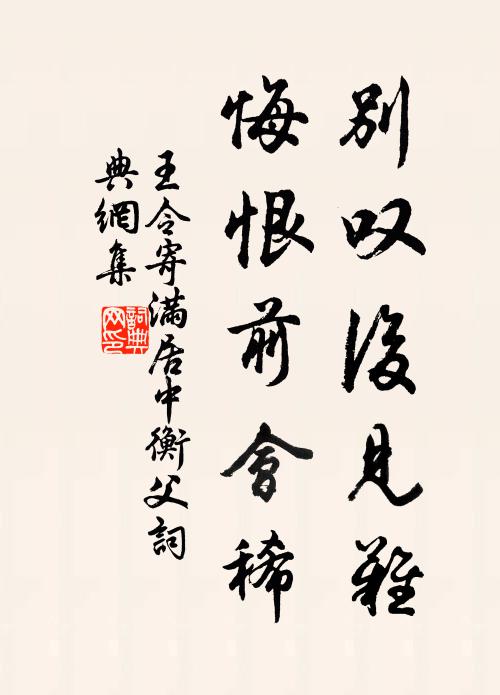 別叹後見難
悔恨前會稀
王令寄滿居中衡父詞
典網集
詞典
网印